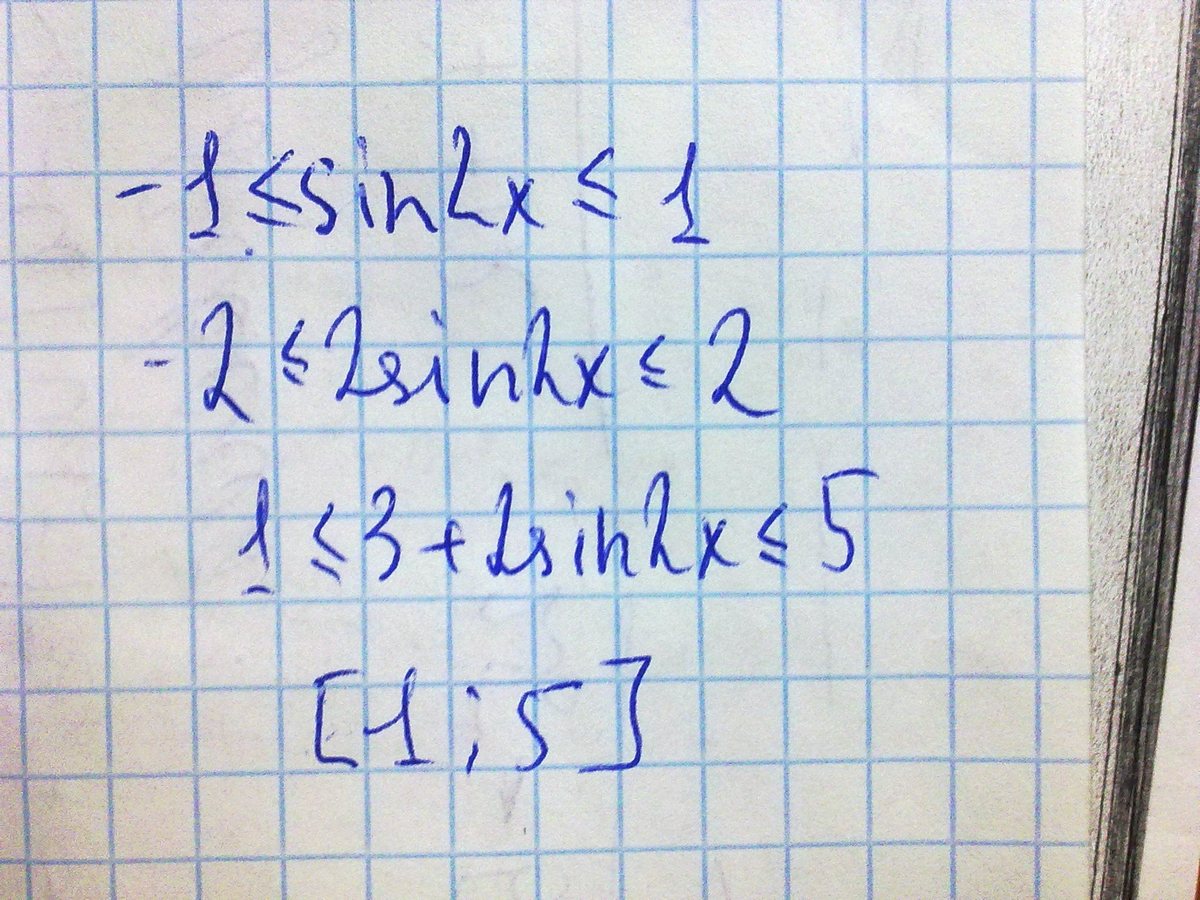 -1≤sin2x≤1
-2≤2sin2x≤2
1≤3+2sin2x≤5
[1;5]